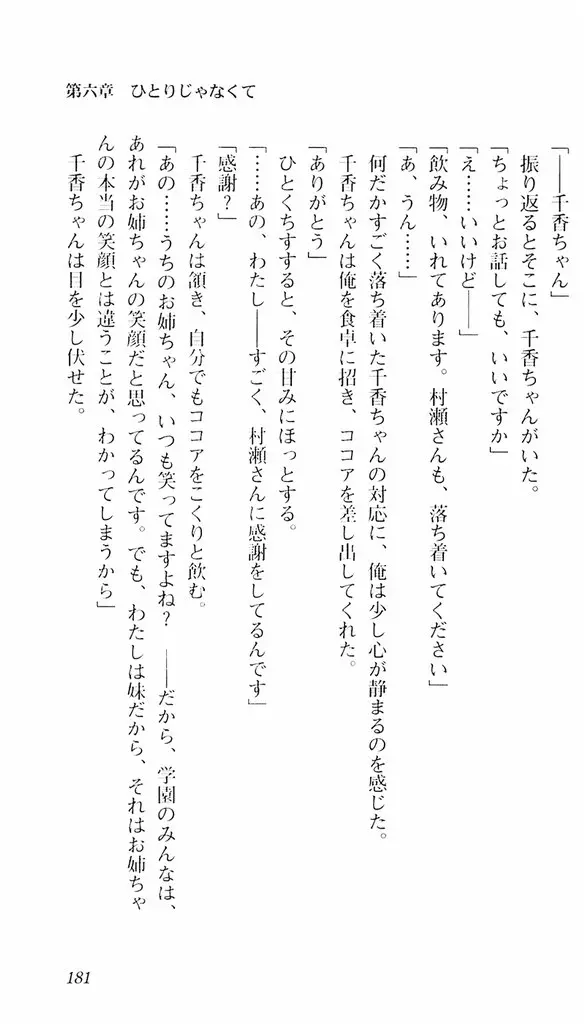 第六章　ひとりじゃなくて
「――千香ちゃん」
　振り返るとそこに、千香ちゃんがいた。
「ちょっとお話しても、いいですか」
「え……いいけど――」
「飲み物、いれてあります。村瀬さんも、落ち着いてください」
「あ、うん……」
　何だかすごく落ち着いた千香ちゃんの対応に、俺は少し心が静まるのを感じた。
　千香ちゃんは俺を食卓に招き、ココアを差し出してくれた。
「ありがとう」
　ひとくちすすると、その甘みにほっとする。
「……あの、わたし――すごく、村瀬さんに感謝をしてるんです」
「感謝？」
　千香ちゃんは頷き、自分でもココアをこくりと飲む。
「あの……うちのお姉ちゃん、いつも笑ってますよね？　――だから、学園のみんなは、
あれがお姉ちゃんの笑顔だと思ってるんです。でも、わたしは妹だから、それはお姉ちゃ
んの本当の笑顔とは違うことが、わかってしまうから」
　千香ちゃんは目を少し伏せた。
181